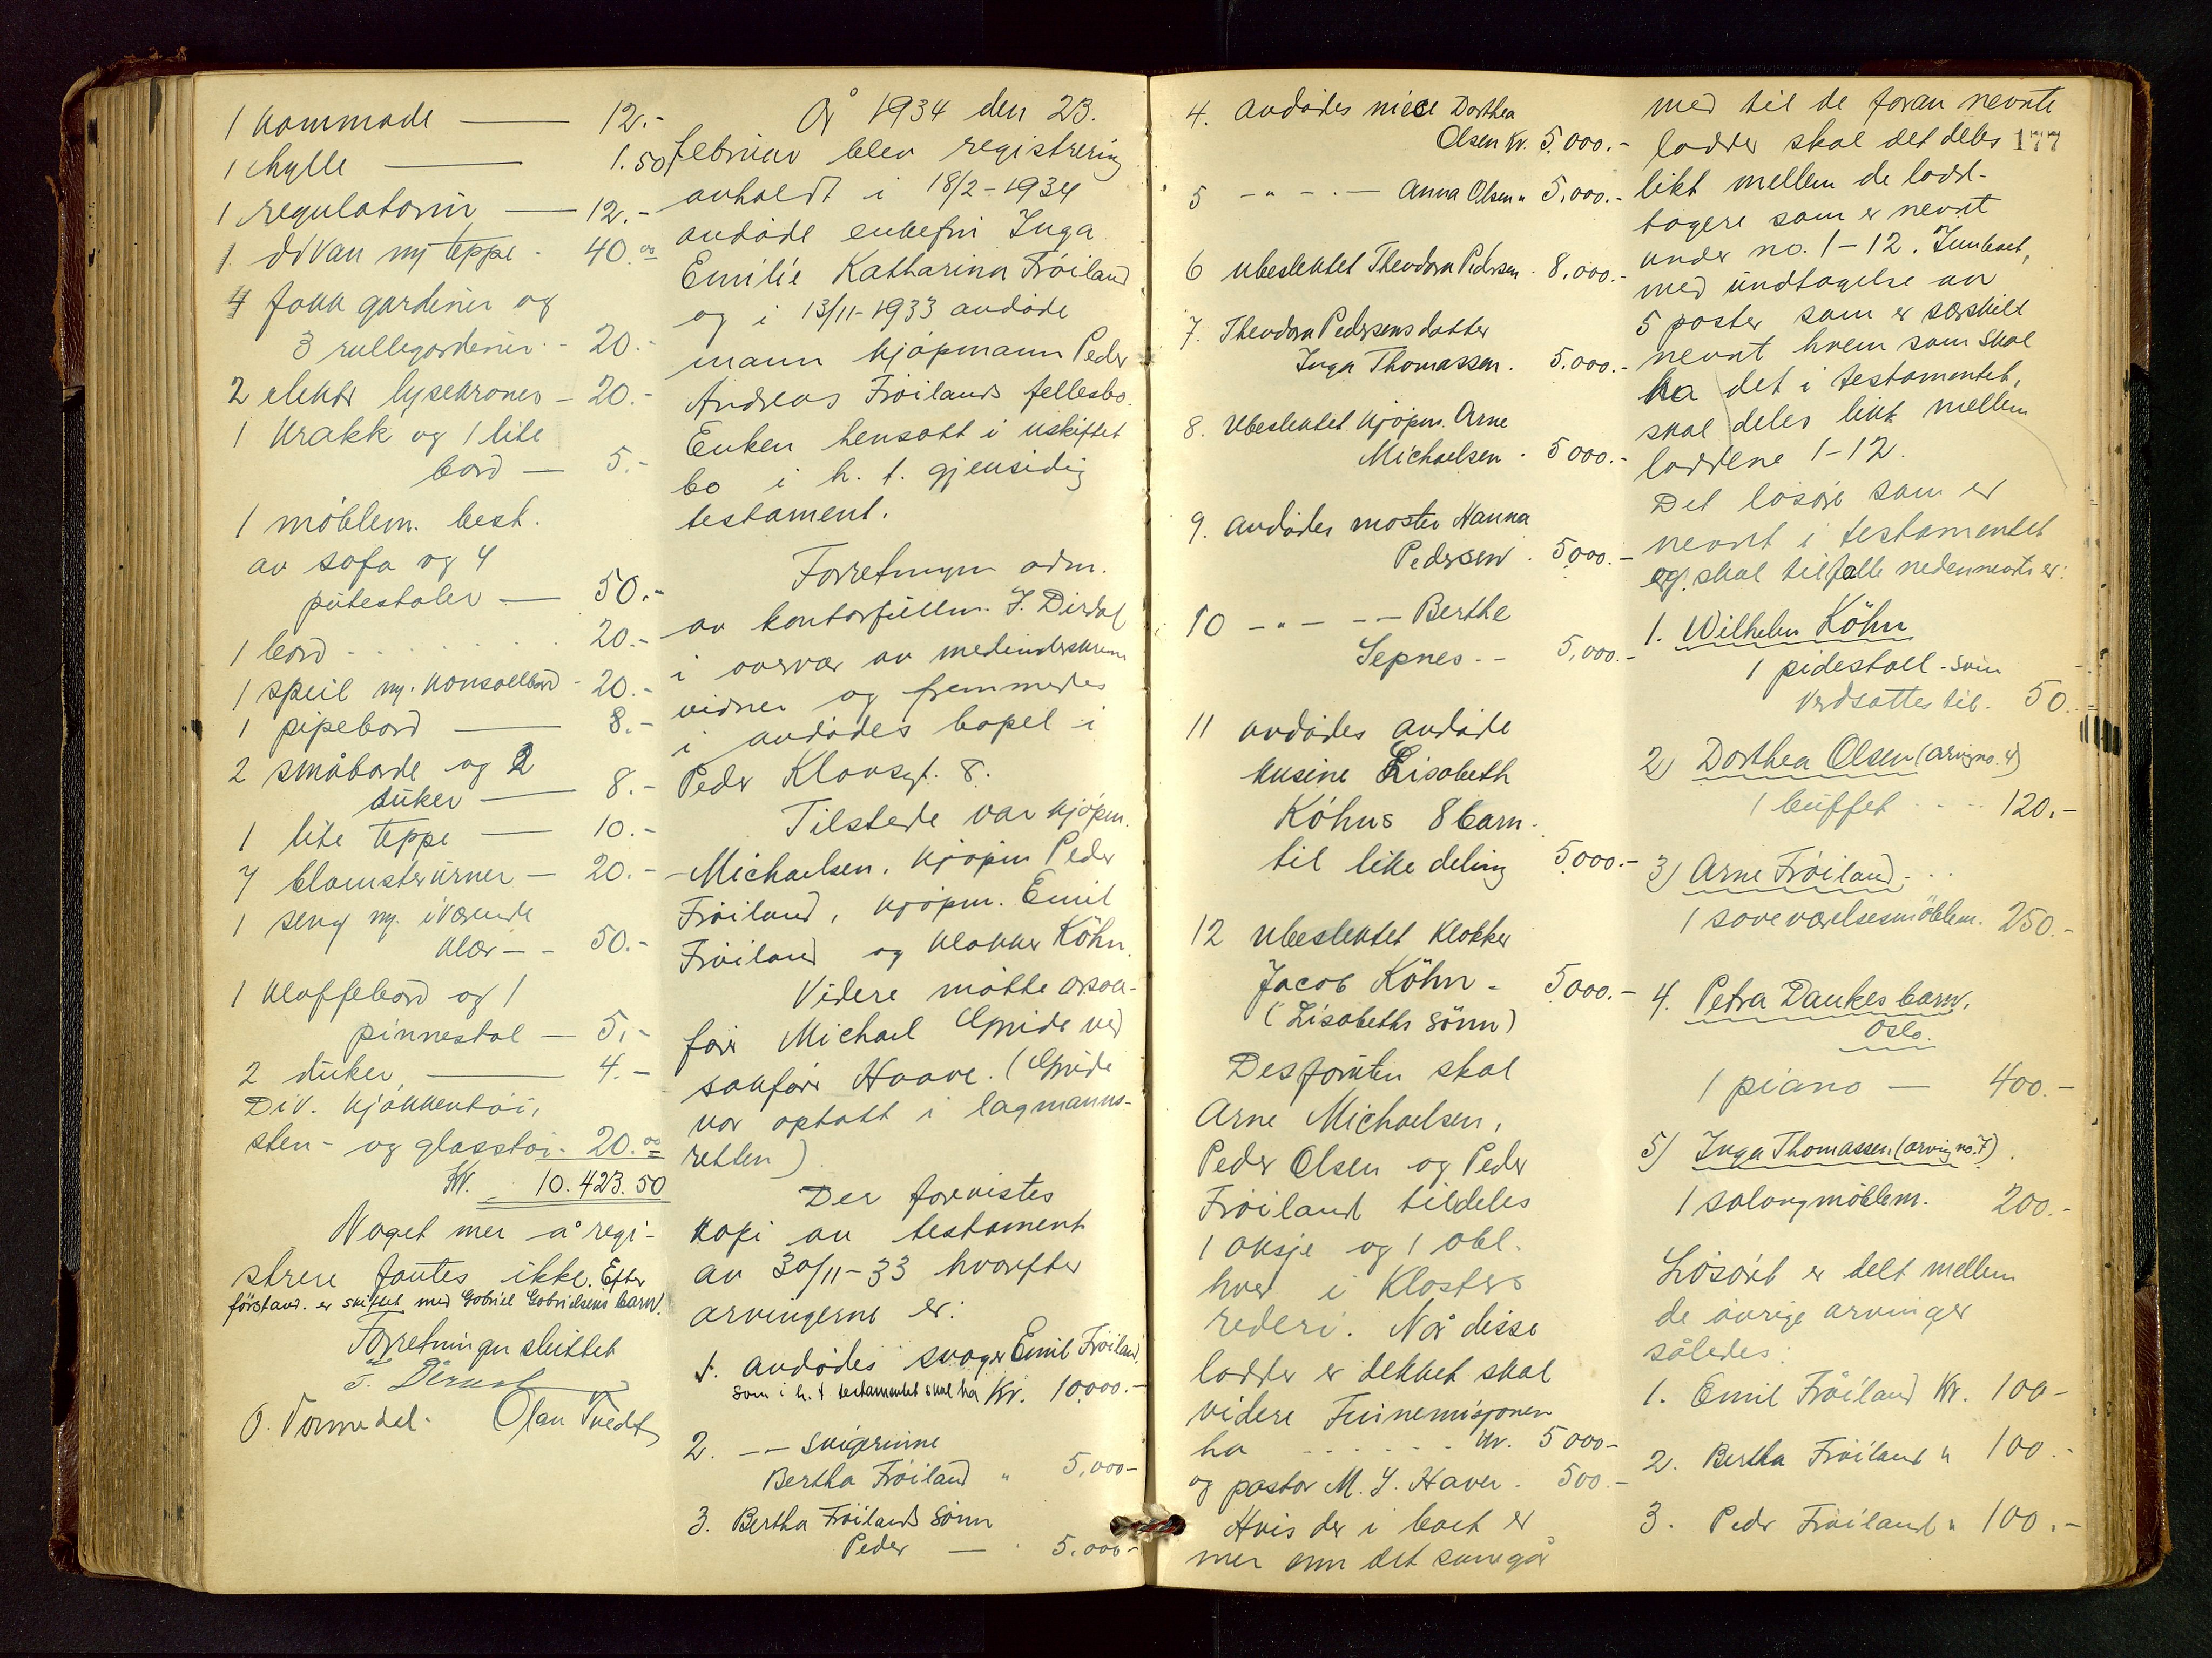 1 kommode — 12.-
1 hylle — 1.50
1 regulatorur — 12.-
1 divan m/ teppe - 40.00
4 fakk gardiner og
3 rullegardiner - 20.-
2 elektr lysekroner - 20.-
1 krakk og 1 lite
bord — 5.-
1 möblem. best.
av sofa og 4
pütestoler — 50.-
1 bord . . . . 20.-
1 speil m/ konsollbord - 20.-
1 pipebord — 8.-
2 småborde og 2
duker — 8.-
1 lite teppe — 10.-
7 blomsterurner — 20.-
1 seng m/ iværende
klær - - 50.-
1 klaffebord og 1
pinnestol — 5.-
2 duker — 4.-
Div. kjøkkentøi,
sten- og glasstøi - 20.00
Kr. 10.423.50
Noget mer å regi-
strere fantes ikke. Efter
förstand. er skiftet med Gabriel Gabrielsens barn.
Forretningen sluttet
J. Dirdal
O. Tormodal. Olav Tvedt
År 1934 den 23.
februar blev registrering
avholdt i 18/2-1934
avdöde enkefru Inga
Emilie Katharina Fröiland
og i 13/11-1933 avdöde
mann kjöpmann Peder
Andreas Fröilands fellesbo.
Enken hensatt i uskiftet
bo i h. t. gjensidig
testament.
Forretningen adm.
av kontorfullm. J. Dirdal
i overvær av medunderskrevne
vidner og fremmedes
i avdödes bopel i
Peder Klovsgt. 8.
Tilstede var kjöpm.
Michaelsen, kjöpm Peder
Fröiland, kjöpm. Emil
Fröiland og klokker Köhn.
Videre mötte orsak-
förer Michael Gjerde ved
sakförer Haave. (Gjerde
var optatt i lagmanns-
retten)
Der forevistes
kopi av testament
av 30/11-33 hvorefter
arvingerne er:
1. avdödes svoger Emil Fröiland,
som i h. t testamentet skal ha Kr. 10.000.-
2. - - svigerinne
Bertha Fröiland " 5.000-
3. Bertha Fröilands sönn
Peder — 5.000-
4. avdödes niece Dorthea
Olsen kr. 5.000.-
5 - " - - Anna Olsen " 5.000.-
6 ubeslektet Theodora Pedersen . 8.000.-
7. Theodora Pedersens datter
Inga Thomassen. 5.000.-
8. Ubeslektet kjöpm. Arne
Michaelsen . 5000.-
9. avdödes moster Hanna
Pedersen . 5000.-
10 - " - - - Berthe
Sepnes - - 5.000.-
11 avdödes avdöde
kusine Lisabeth
Köhns 8 barn
til like deling 5000.-
12 Ubeslektet klokker
Jacob Köhn - 5000.-
(Lisabeths sönn)
Desforuten skal
Arne Michaelsen,
Peder Olsen og Peder
Fröiland tildeles
1 aksje og 1 obl.
hver i Klosters
rederi. Når disse
lodder er dekket skal
videre Finnemisjonen
ha - - - - - kr. 5000-
og pastor M. S. Haver. 500.-
Hvis der i boet er
mer enn det som går
med til de foran nevnte
lodder skal det deles
likt mellem de lodd-
tagere som er nevnt
under no. 1-12. Innboet,
med undtagelse av
5 poster som er særskilt
nevnt hvem som skal
ha det i testamentet,
skal deles likt mellem
loddene 1-12.
Det lösöre som er
nevnt i testamentet
og skal tilfalle nedennevnte er:
177
1. Wilhelm Köhn
1 pidestall - som
verdsattes til - 50.-
2) Dorthea Olsen (arving no. 4)
1 buffet - - - 120.-
3) Arne Fröiland. . .
1 soveværelsesmöblem. 250.-
4. Petra Dankes barn,
Oslo.
1 piano — 400.-
5) Inga Thomassen (arving no. 7).
1 salongmöblem. 200.-
Lösöret er delt mellem
de övrige arvinger
således:
1. Emil Fröiland Kr. 100-
2. Bertha Fröiland " 100.-
3. Peder Fröiland " 100.-